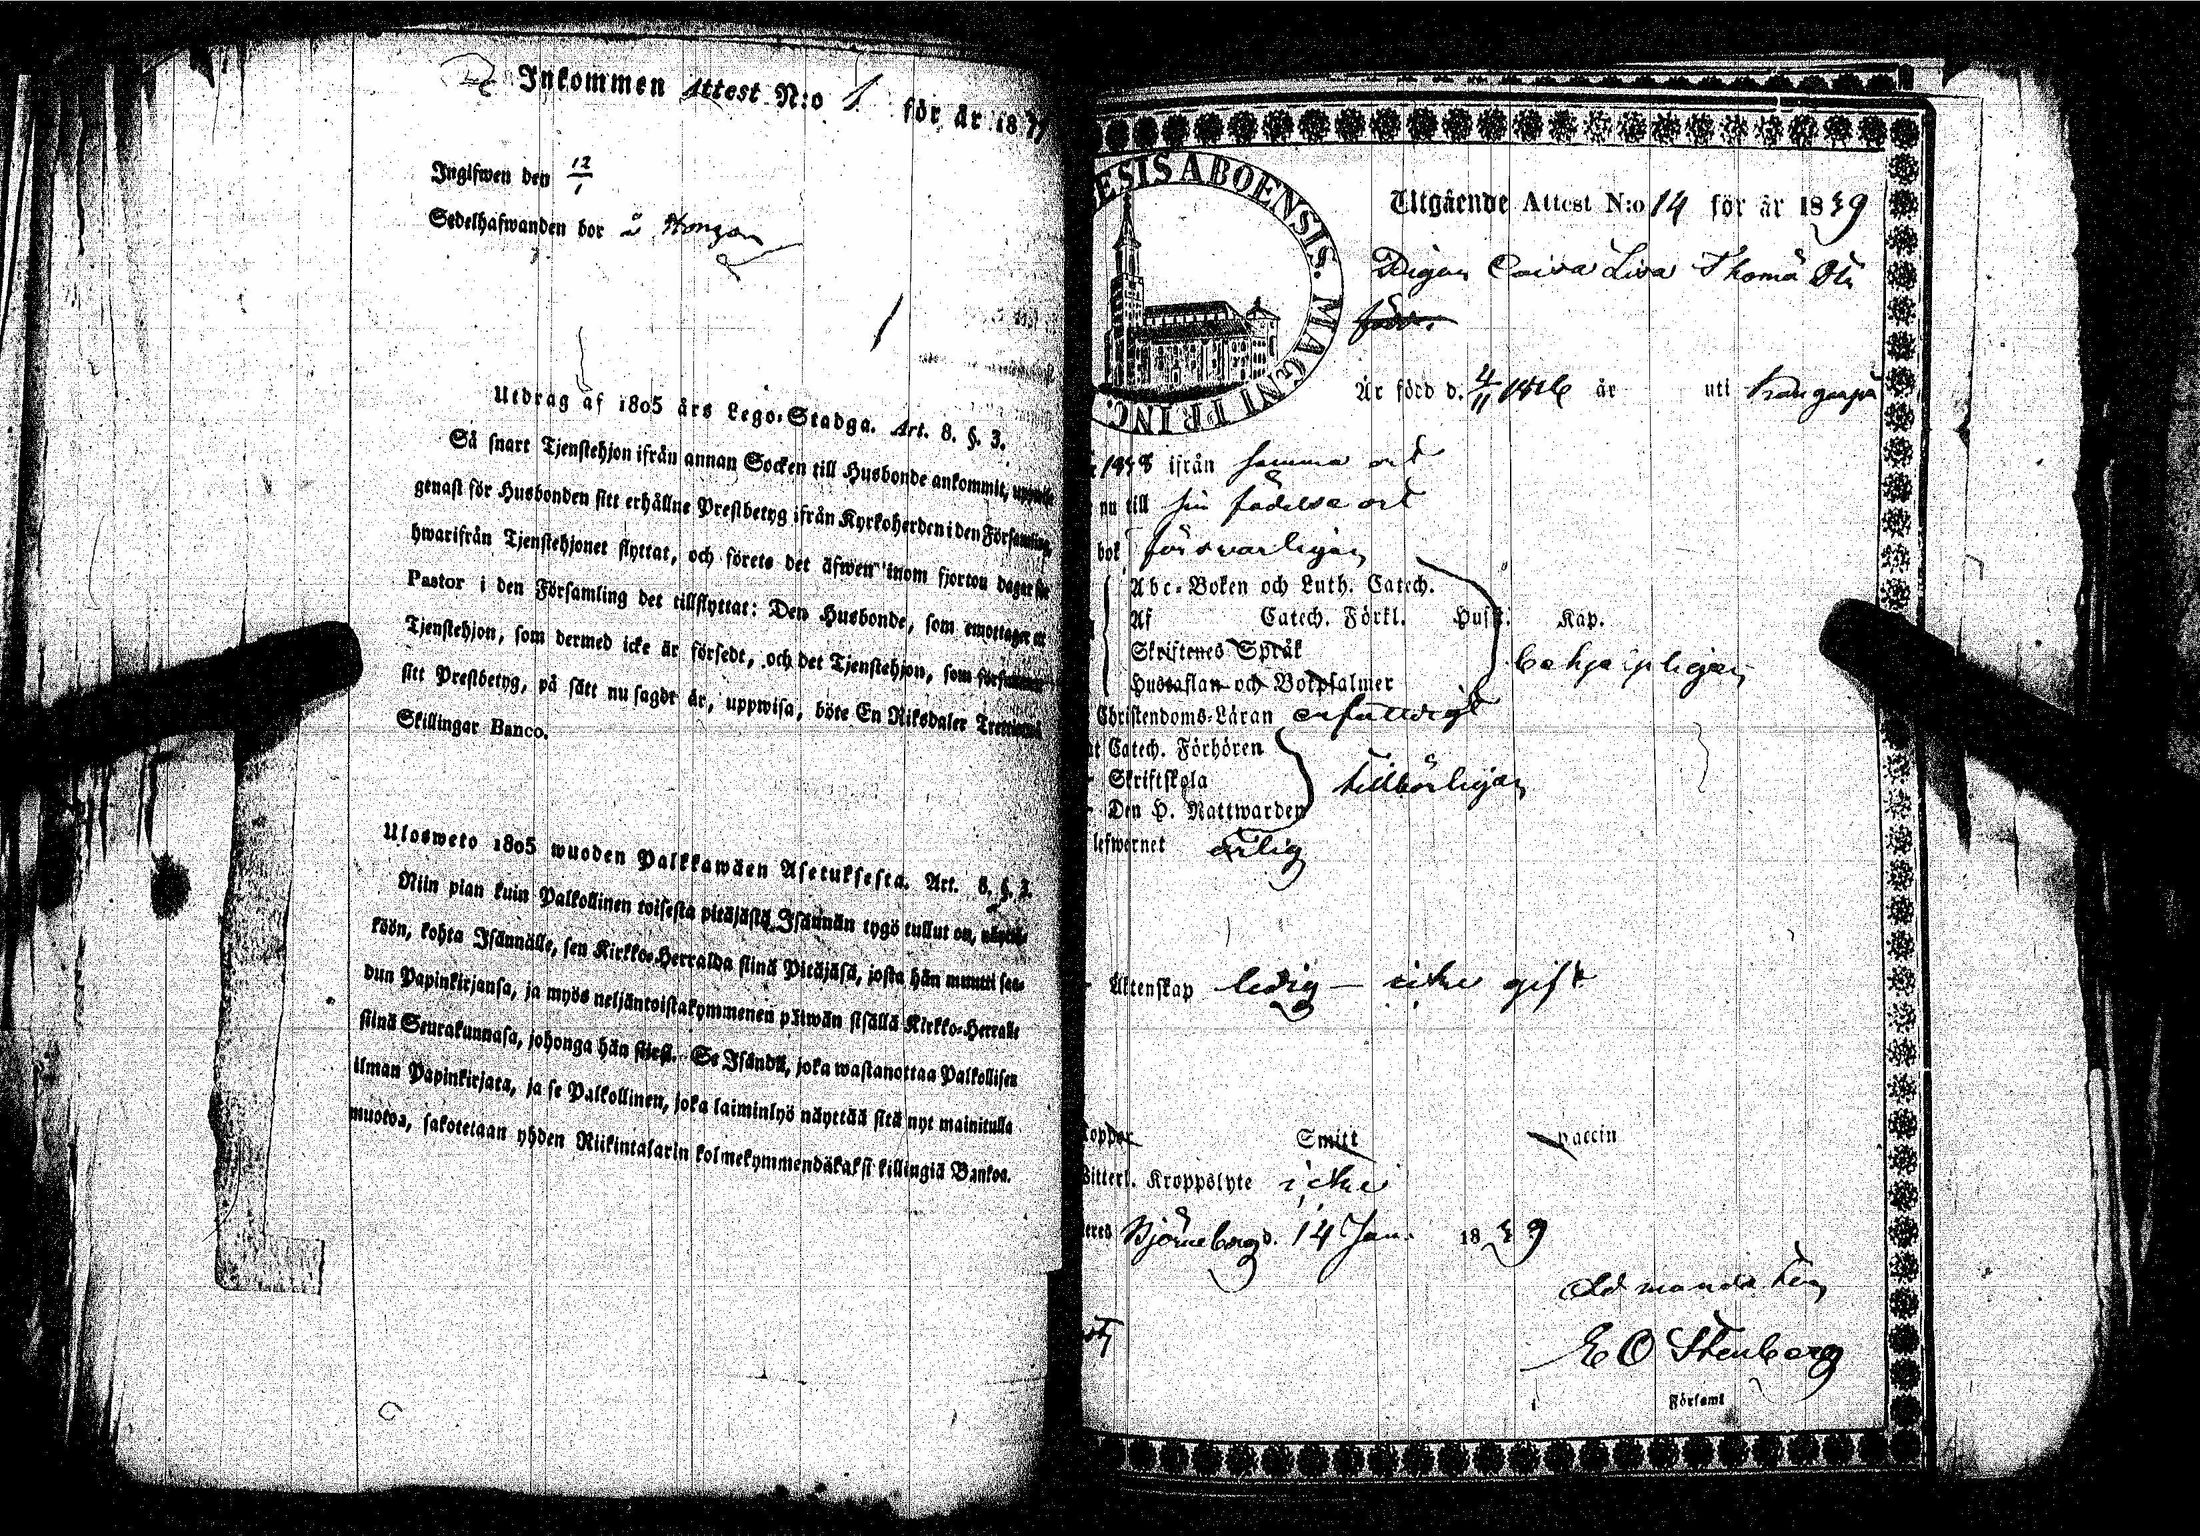 Inkommen Attest N:o 1 för år 18
Ingifwen den 12/1
Sedelhafwanden bor å
Utdrag af 1805 års Lego-Stadga. Art. 8. §. 3.
Så snart Tjenstehjon ifrån annan Socken till Husbonde ankommit,
genast för Husbonden sitt erhållne Prestbetyg ifrån Kyrkoherden i den Församling,
hwarifrån Tjenstehjonet flyttat, och förete det äfwen inom fjorton dagar för
Pastor i den Församling det tillflyttat: Den Husbonde, som emottager et
Tjenstehjon, som dermed icke är försedt, och det Tjenstehjon, som försummar
sitt Prestbetyg, på sätt nu sagdt är, uppwisa, böte En Riksdaler Trettiotvå
Skillingar Banco.
Ulosweto 1805 wuoden Palkkawäen Asetuksesta. Art. 8. §. 3.
Niin pian kuin Palkollinen toisesta pitäjästä Isännän tygö tullut on, näyttä-
köön, kohta Isännälle, sen Kirkko-Herralda siinä Pitäjäsä, josta hän muutti saa-
dun Papinkirjansa, ja myös neljäntoistakymmenen päiwän sisällä Kirkko-Herralle
siinä Seurakunnasa, johonga hän siirsi. Se Isändä, joka wastanottaa Palkollisen
ilman Papinkirjata, ja se Palkollinen, joka laiminlyö näyttää sitä nyt mainitulla
muotoa, sakotetaan yhden Riikintalarin kolmekymmendäkaksi killingiä Bankoa.
ESIS ABOENSIS. MAGNI PRINC.
Utgående Attest N:o 14 för år 1839
Pigan Caisa Lisa Thomä Dtr
född.
Är född d. 4/11 1816 år uti Kangaspä
1838 ifrån samma ort
nu till sin födelse ort
bok försvarligen
Abc-Boken och Luth. Catech.
Af Catech. Förkl. Husf. Kap.
Skriftenes Språk
Hustaflan och Botpsalmer
behjelpligen
Christendoms-Läran enfaldigt
Catech. Förhören
Skriftskola
Den H. Nattwarden
tillbörligen
lefwernet ärlig
Äktenskap ledig — icke gift
Koppor Smitt vaccin
Witterl. Kroppslyte icke
Björneborg d. 14 Jan. 1839
Ad mandatum
E O Stenberg
Församl